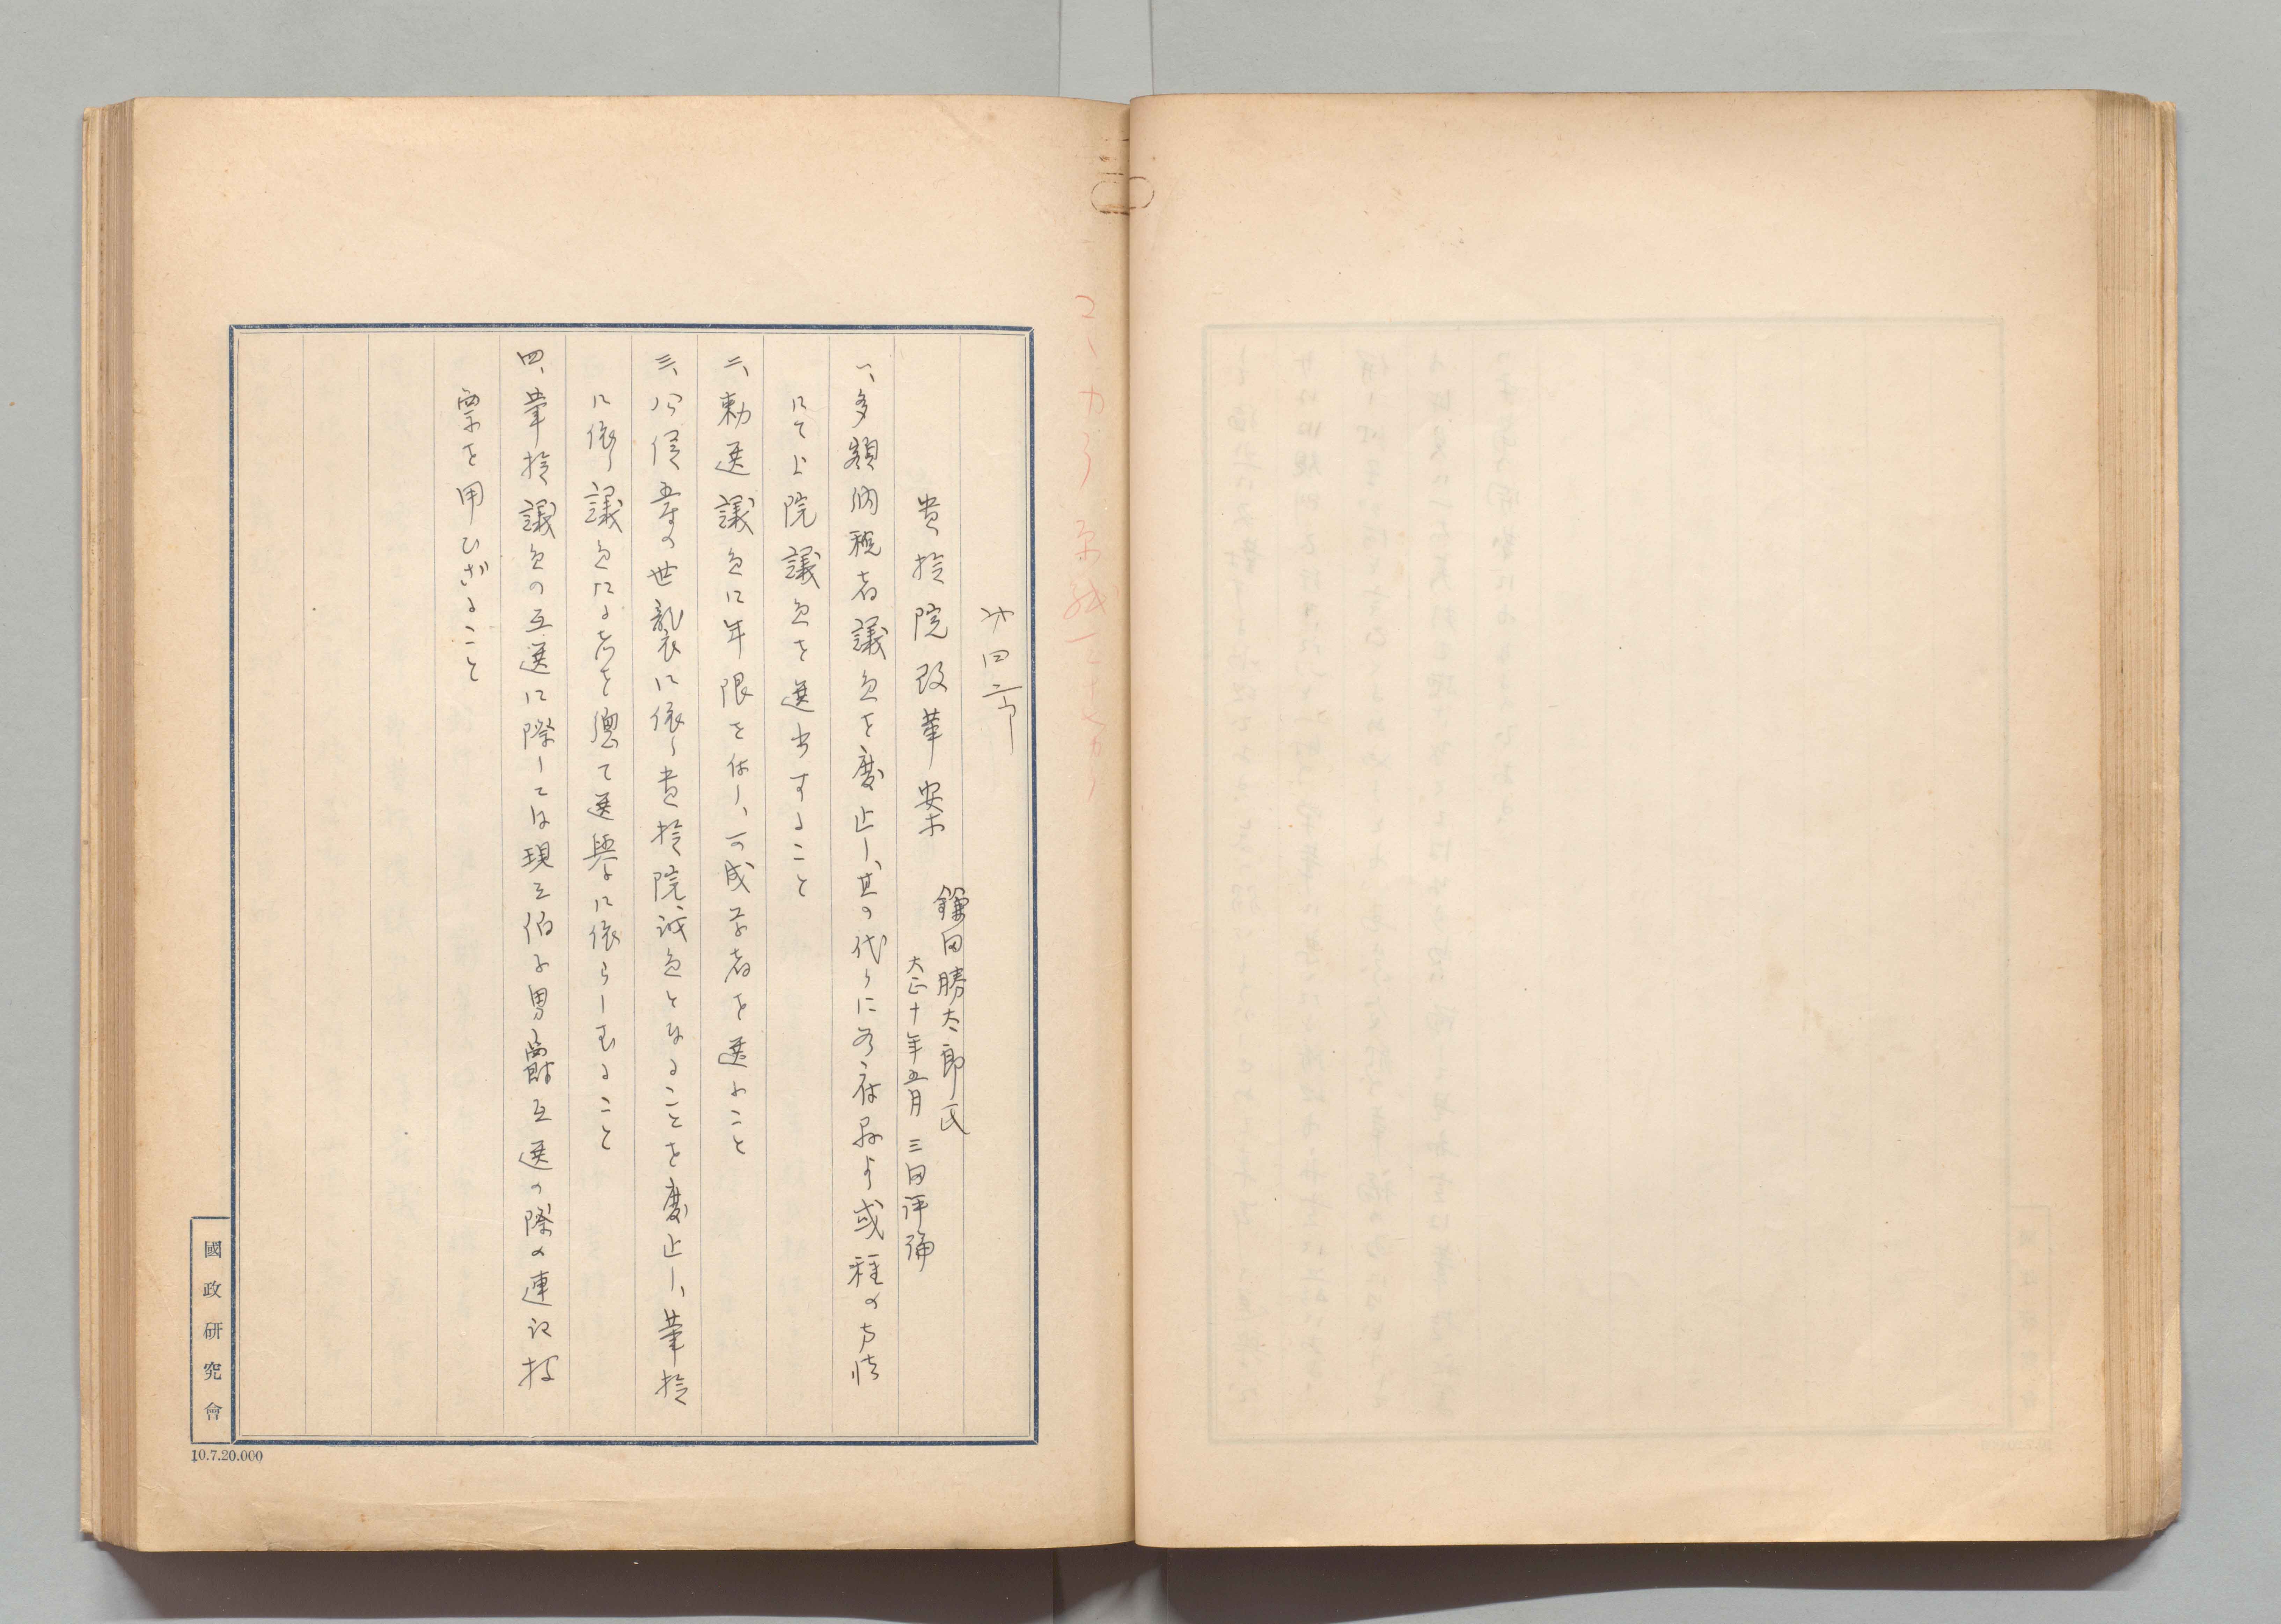 貴族院改革案
鎌田勝太郎氏
大正十年五月 三田評論
一、多額納税者議員を廃止し、其の代りに各府県より或種の方法
にて上院議員を選出すること
二、勅選議員に年限を付し、可成学者を選ぶこと
三、公侯爵の世襲に依り貴族院議員となることを廃止し、華族
に依り議員になる者を總て選擧に依らしむること
四、華族議員の互選に際しては現在伯子男爵互選の際の連記投
票を用ひざること
國政研究會
10.7.20.000